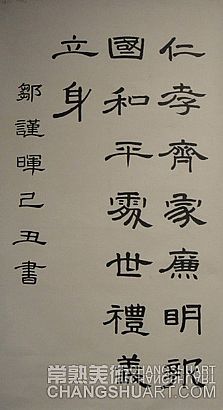 仁孝齊家廉明報
國和平處世禮義
立身
鄒謹暉己丑書
常熟美术
CHANGSHUART.COM